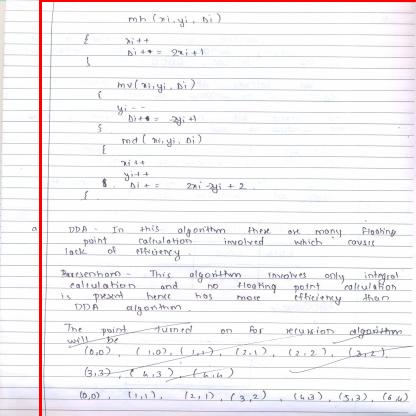 mh (xi, yi, Di)
{ xi++
Di += 2xi+1
}
mv (xi, yi, Di)
{
yi--
Di+= -2yi+1
}
md (xi, yi, Di)
{
xi++
yi++
Di += 2xi-2yi+2
}
DDA - In this algorithm there are many floating
point calculation involved which causes
lack of efficiency.
Bresenham - This algorithm involves only integral
calculation and no floating point calculation
is present hence has more efficiency than
DDA algorithm.
The point turned on for recursion algorithm
will be
(0,0), (1,0), (1,1), (2,1), (2,2), (3,2),
(3,3), (4,3), (4,4)
(0,0), (1,1), (2,1), (3,2), (4,3), (5,3), (6,4)